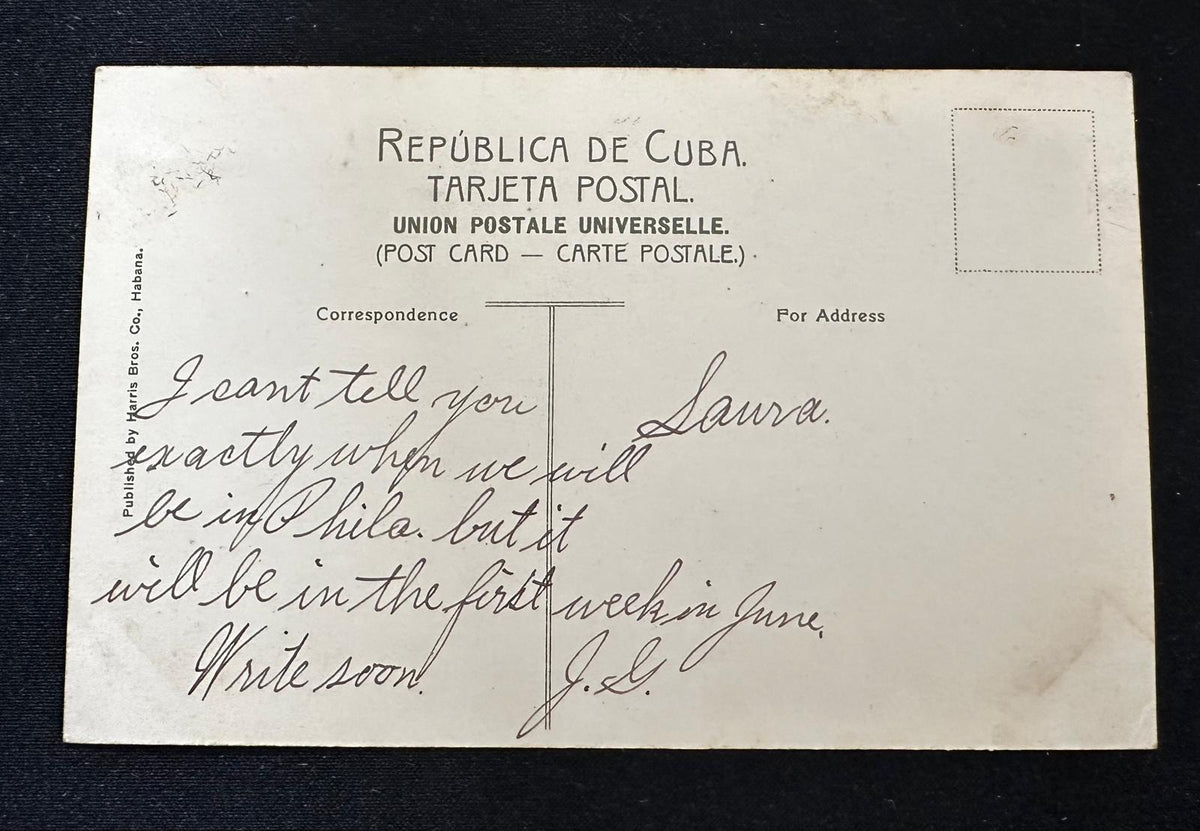 REPÚBLICA DE CUBA.
TARJETA POSTAL.
UNION POSTALE UNIVERSELLE.
(POST CARD — CARTE POSTALE.)
Published by Harris Bros. Co., Habana.
Correspondence
For Address
Laura.
I cant tell you
exactly when we will
be in Phila. but it
will be in the first week in June.
Write soon. J. G.